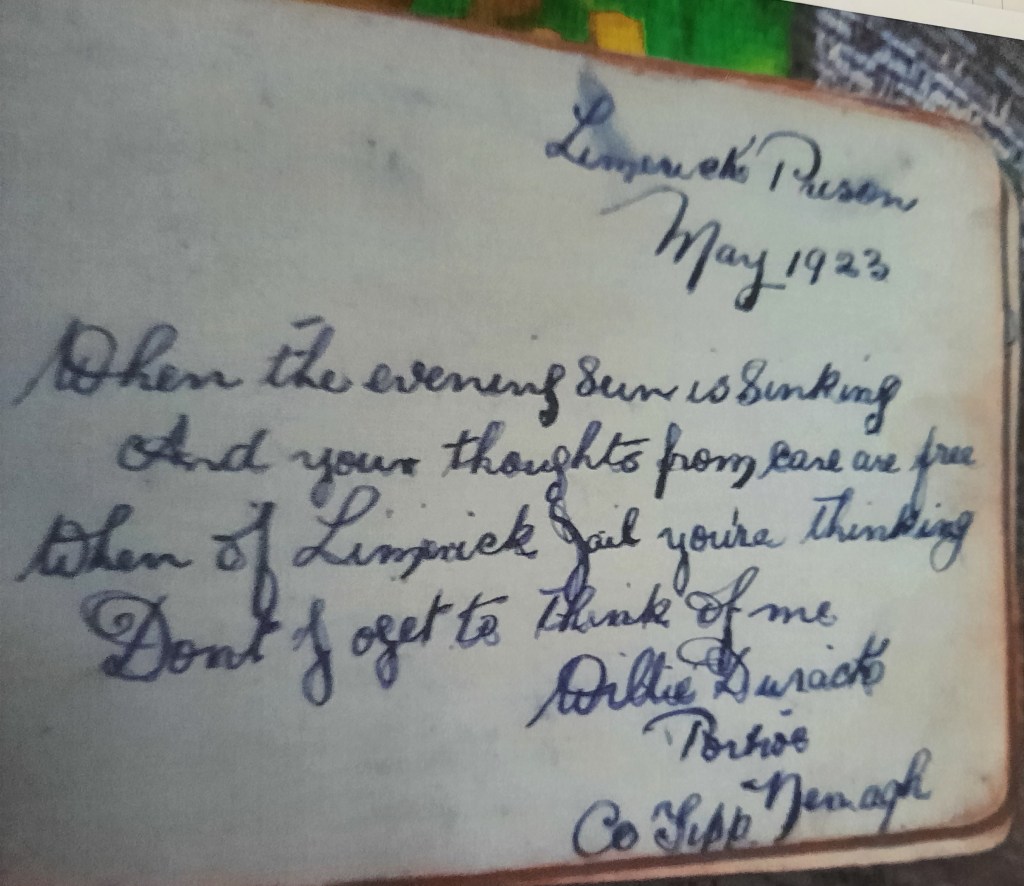 Limerick Prison
May 1923
When the evening Sun is Sinking
And your thoughts from care are free
When of Limerick Jail you're thinking
Dont foget to think of me
Willie Durack
Portroe
Nenagh
Co Tipp